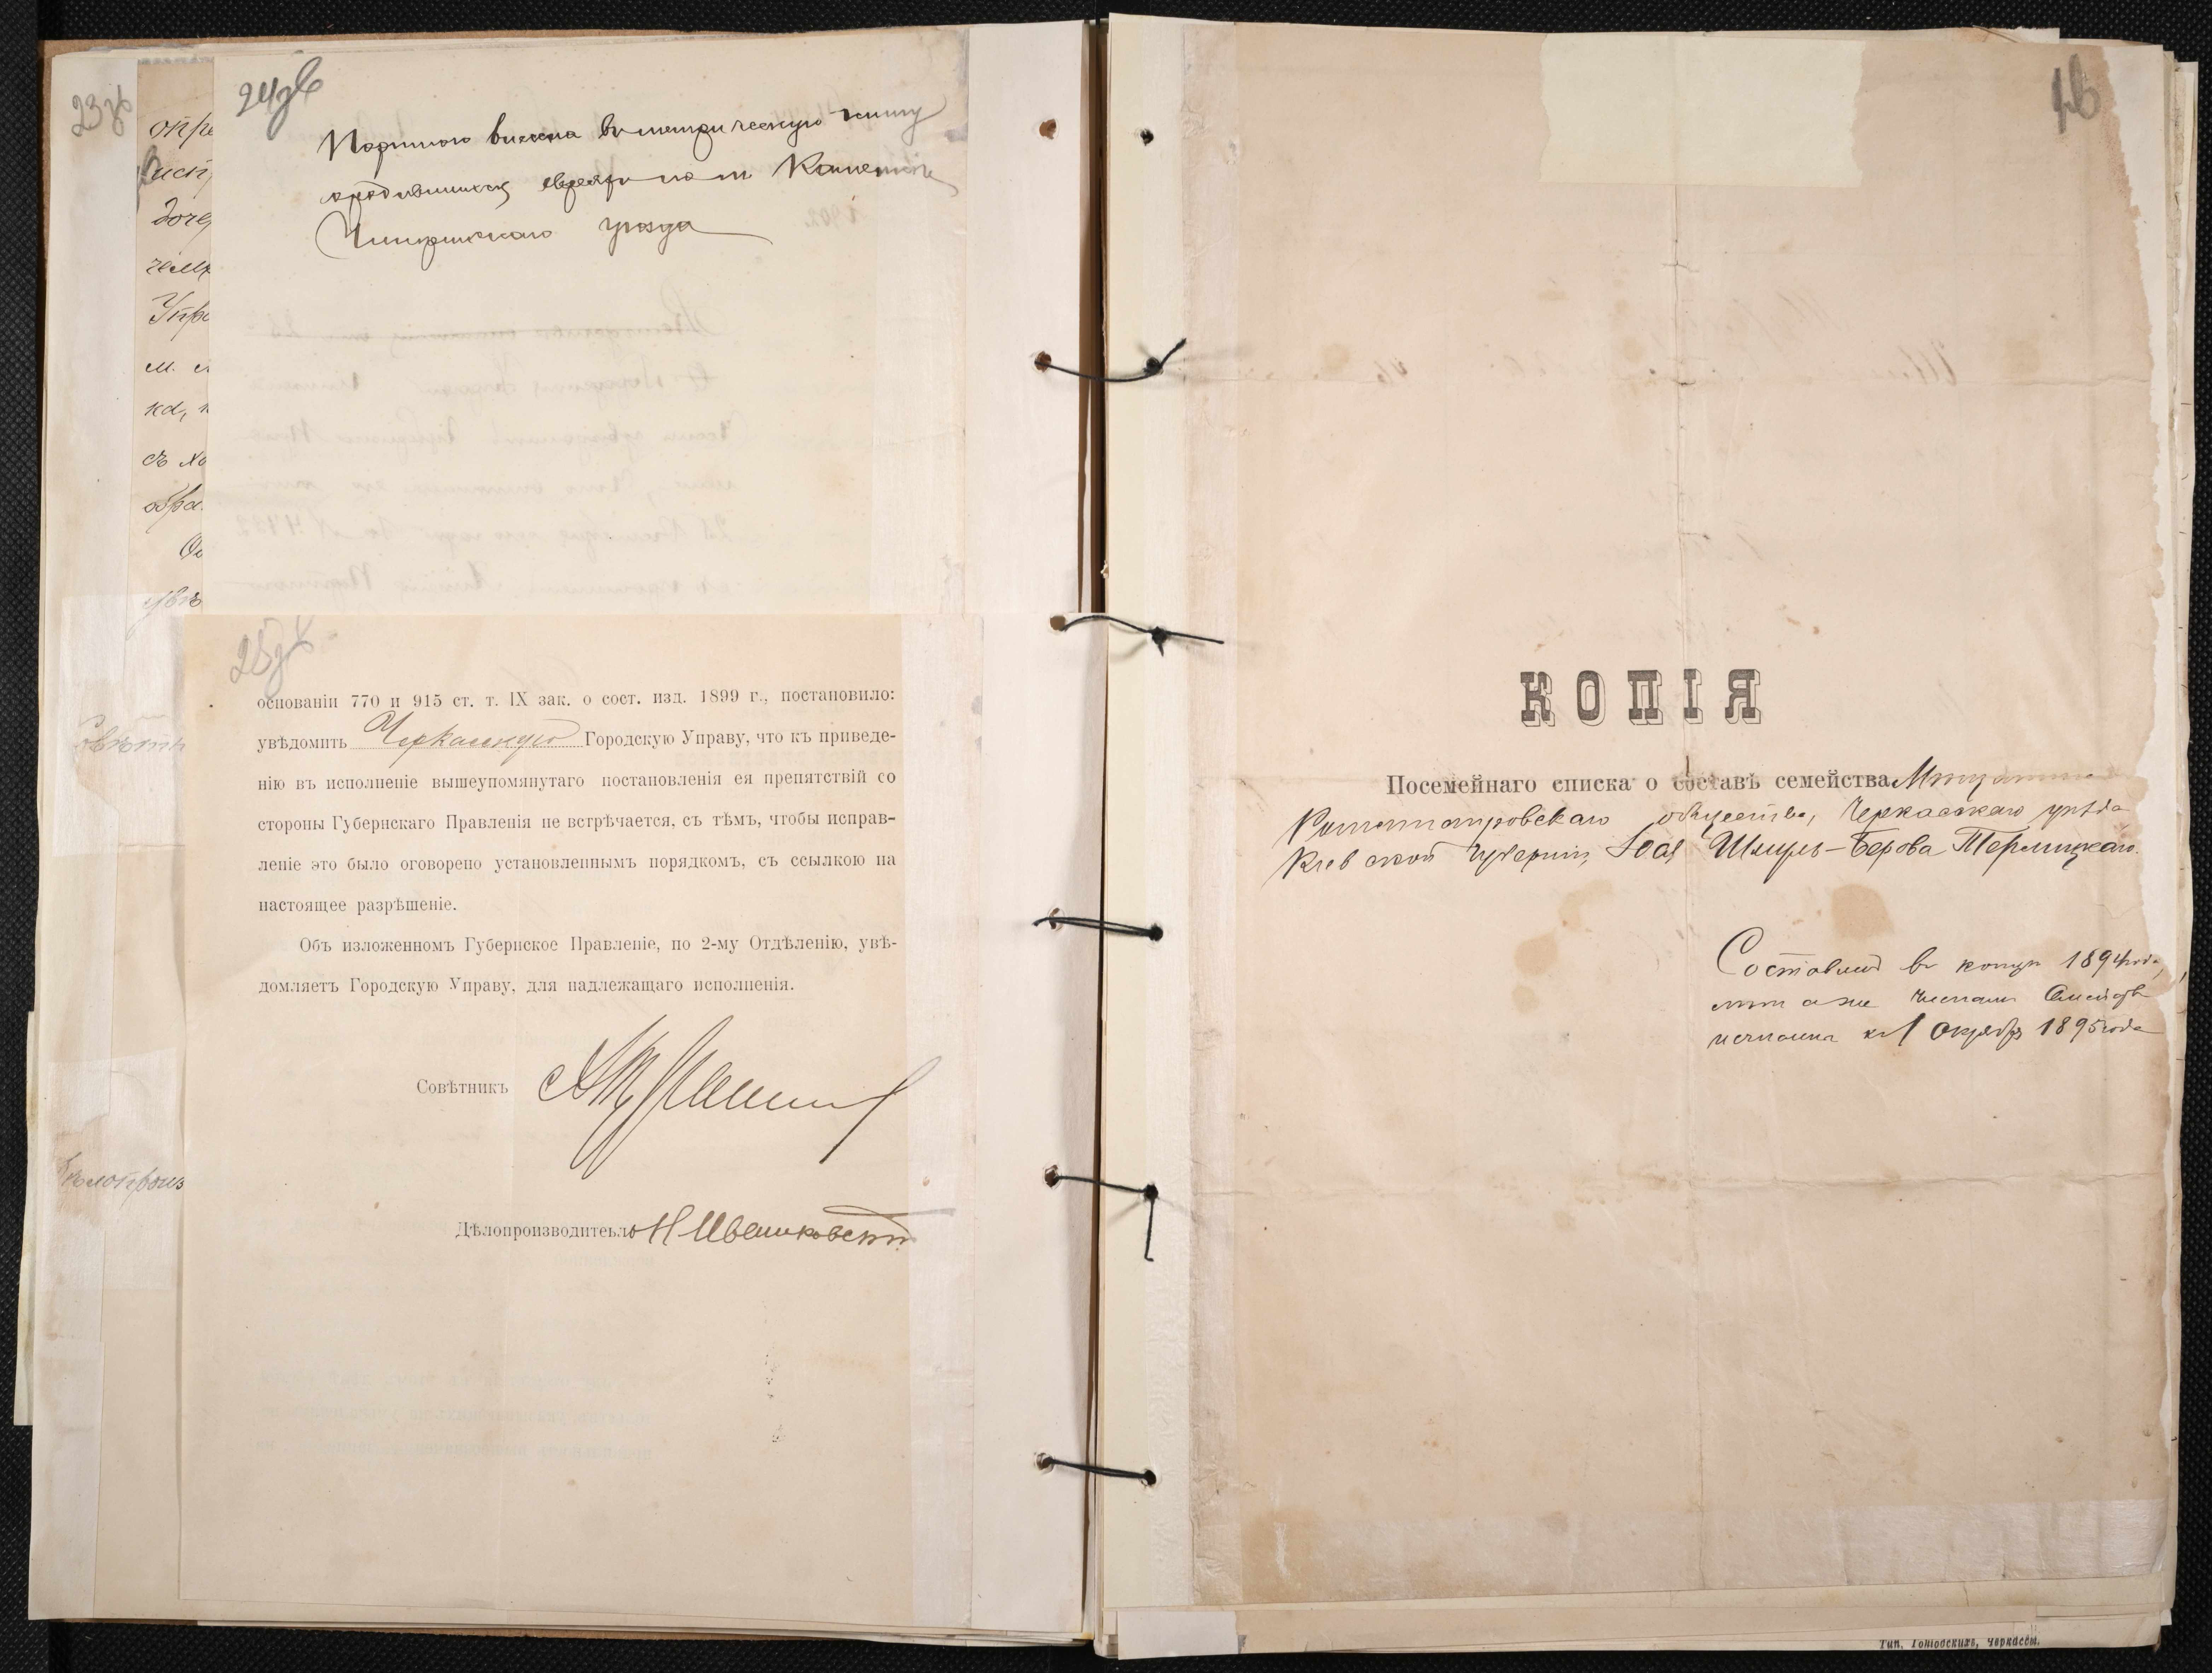 23зв
опре
дочер
Упра
м.
ка, н
съ хо
обра
увѣ
24зв
Портного внесена въ метрическую книгу
о родившихся евреяхъ по м Каменкѣ
Чигиринскаго уѣзда
25зв
основаніи 770 и 915 ст. т. IX зак. о сост. изд. 1899 г., постановило:
увѣдомить Черкасскую Городскую Управу, что къ приведе-
нію въ исполненіе вышеупомянутаго постановленія ея препятствій со
стороны Губернскаго Правленія не встрѣчается, съ тѣмъ, чтобы исправ-
леніе это было оговорено установленнымъ порядкомъ, съ ссылкою на
настоящее разрѣшеніе.
Объ изложенномъ Губернское Правленіе, по 2-му Отдѣленію, увѣ-
домляетъ Городскую Управу, для надлежащаго исполненія.
Совѣтникъ
Дѣлопроизводитель Н Ивашковскій
овѣтн
ѣлопроиз
КОПІЯ
Посемейнаго списка о составѣ семейства Мѣщанина
Ротмистровскаго общества, Черкасскаго уѣзда
Кіевской губерніи, Шмуль-Берова Терлицкаго.
Составленъ въ концѣ 1894 года,
лѣта же членамъ Семействъ
исчислены къ 1 Октября 1895 года
Тип. Гоніодскихъ, Черкассы.